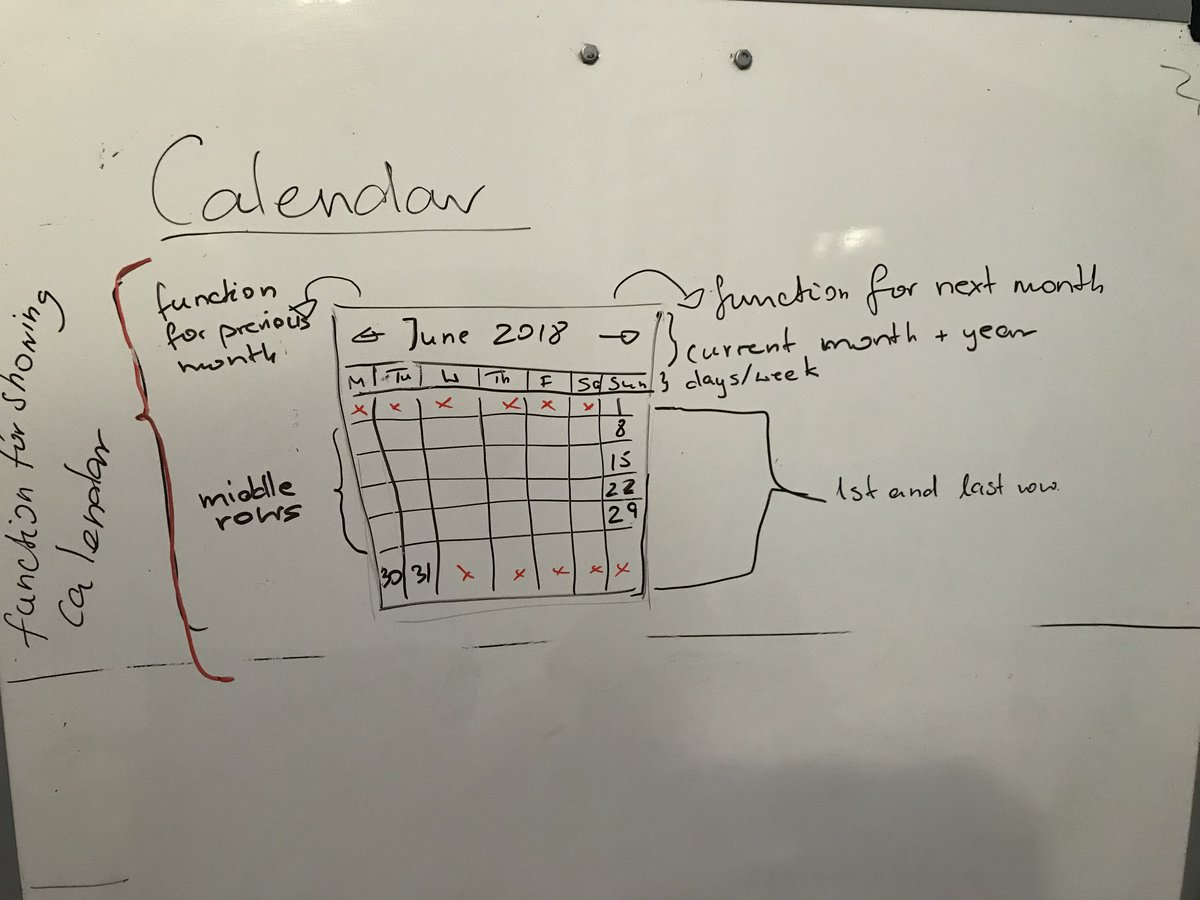 Calendar
function
for previous
month
function for next month
← June 2018 →
current month + year
M Tu W Th F Sa Sun
days/week
x x x x x x 1
8
15
22
29
30 31 x x x x x
middle
rows
1st and last row.
function for showing
Calendar